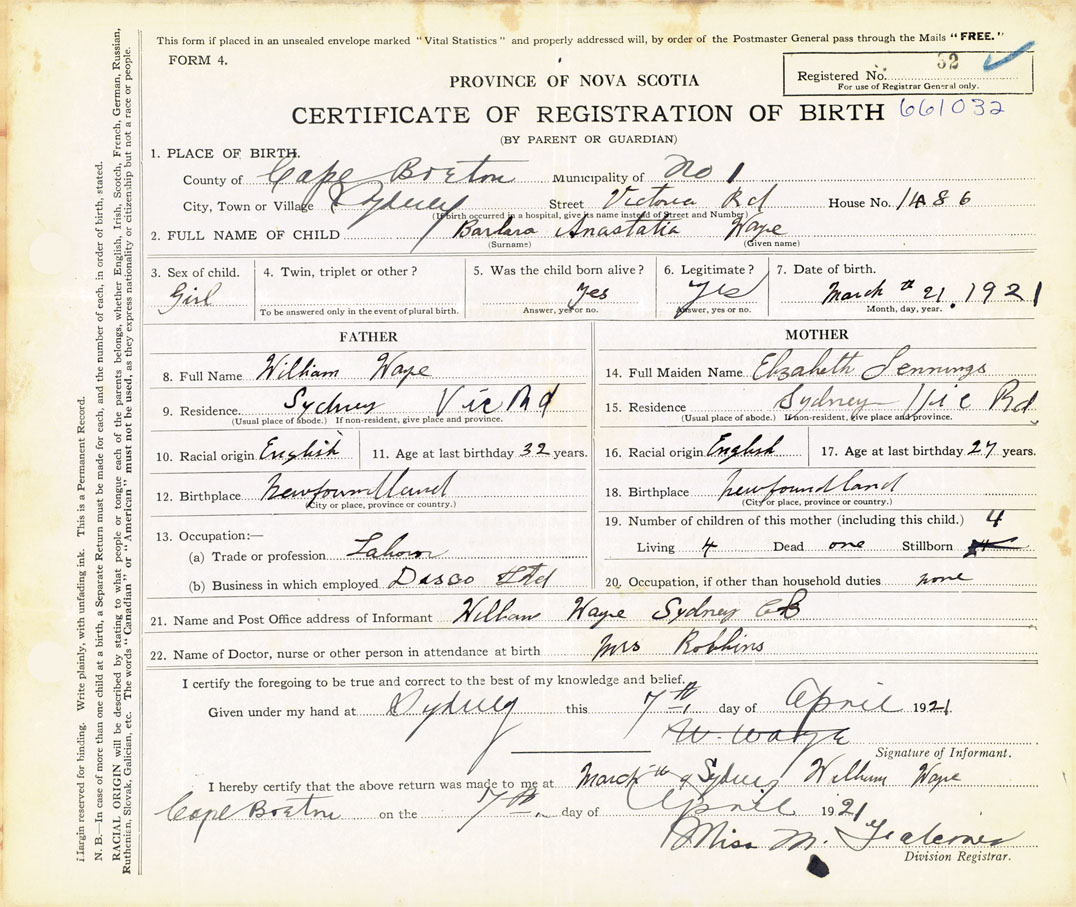 This form if placed in an unsealed envelope marked "Vital Statistics" and properly addressed will, by order of the Postmaster General pass through the Mails "FREE."
FORM 4.
Registered No. 32
For use of Registrar General only.
PROVINCE OF NOVA SCOTIA
CERTIFICATE OF REGISTRATION OF BIRTH 661032
(BY PARENT OR GUARDIAN)
1. PLACE OF BIRTH.
County of Cape Breton Municipality of No 1
City, Town or Village Sydney Street Victoria Rd House No. 1486
(If birth occurred in a hospital, give its name instead of Street and Number)
2. FULL NAME OF CHILD Barbara Anastatia Waye
(Surname) (Given name)
3. Sex of child. 4. Twin, triplet or other? 5. Was the child born alive? 6. Legitimate? 7. Date of birth.
Girl Yes Yes March th 21. 1921
To be answered only in the event of plural birth. Answer, yes or no. Answer, yes or no. Month, day, year.
FATHER MOTHER
8. Full Name William Waye 14. Full Maiden Name Elizabeth Jennings
9. Residence. Sydney Vic Rd 15. Residence Sydney Vic Rd
(Usual place of abode.) If non-resident, give place and province. (Usual place of abode.) If non-resident, give place and province.
10. Racial origin English 11. Age at last birthday 32 years. 16. Racial origin English 17. Age at last birthday 27 years.
12. Birthplace Newfoundland 18. Birthplace Newfoundland
(City or place, province or country.) (City or place, province or country.)
13. Occupation:— 19. Number of children of this mother (including this child.) 4
(a) Trade or profession Labour Living 4 Dead one Stillborn
(b) Business in which employed Disco Ltd 20. Occupation, if other than household duties none
21. Name and Post Office address of Informant William Waye Sydney CB
22. Name of Doctor, nurse or other person in attendance at birth Mrs Robbins
I certify the foregoing to be true and correct to the best of my knowledge and belief.
Given under my hand at Sydney this 7th. day of April 1921.
W. Waye
Signature of Informant.
I hereby certify that the above return was made to me at March th Sydney William Waye
Cape Breton on the 7th. day of April 1921
Miss M.
Division Registrar.
Margin reserved for binding. Write plainly, with unfading ink. This is a Permanent Record.
N. B.—In case of more than one child at a birth, a Separate Return must be made for each, and the number of each, in order of birth, stated.
RACIAL ORIGIN will be described by stating to what people or tongue each of the parents belongs, whether English, Irish, Scotch, French, German, Russian,
Ruthenian, Slovak, Galician, etc. The words "Canadian" or "American" must not be used, as they express nationality or citizenship but not a race or people.